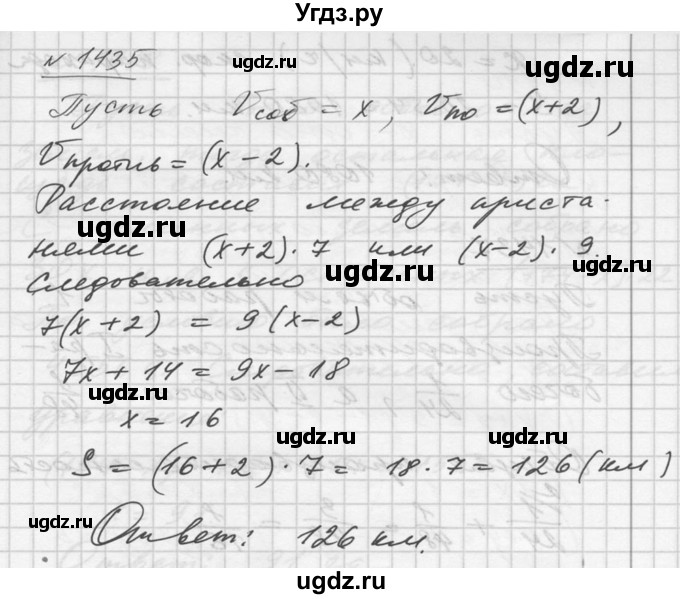 Угдз.ру
№ 1435
Пусть Vсоб = x, Vпо = (x+2),
Vпротив = (x − 2).
Расстояние между приста-
нями (x+2) · 7 или (x−2) · 9.
Следовательно
7(x+2) = 9(x−2)
7x + 14 = 9x − 18
x = 16
S = (16+2) · 7 = 18 · 7 = 126 (км)
Ответ: 126 км.
ugdz.ru
ugdz.ru
ugdz.ru
ugdz.ru
ugdz.ru
ugdz.ru
ugdz.ru
ugdz.ru
ugdz.ru
ugdz.ru
ugdz.ru
ugdz.ru